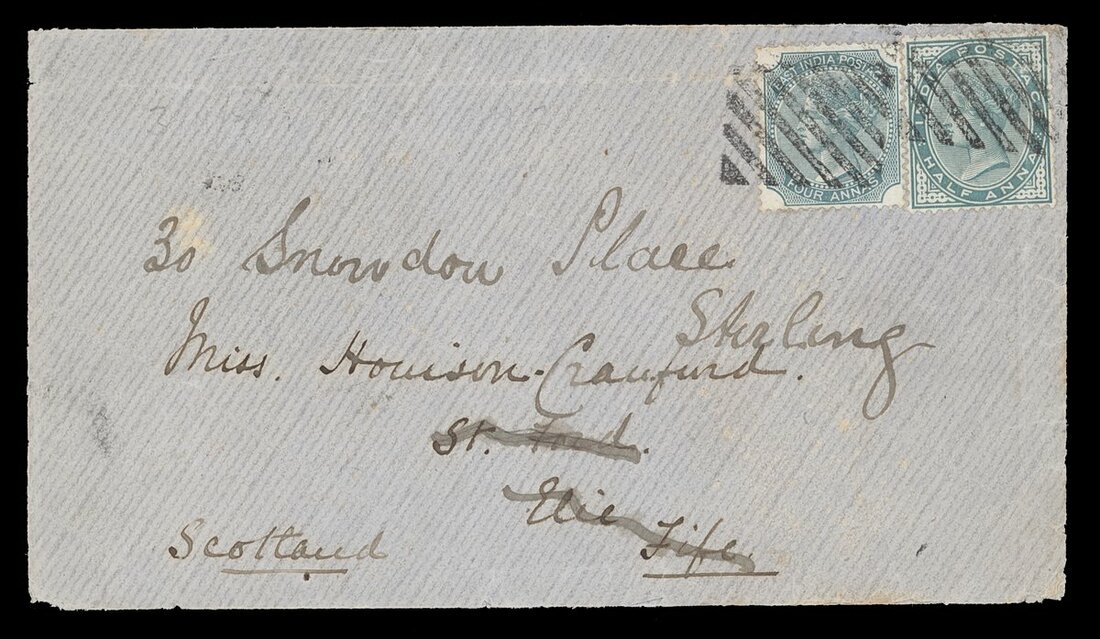 EAST INDIA POSTAGE
FOUR ANNAS
INDIA POSTAGE
HALF ANNA
30 Snowdon Place
Stirling
Miss. Houison-Craufurd.
St. Ford.
Elie
Fife.
Scotland